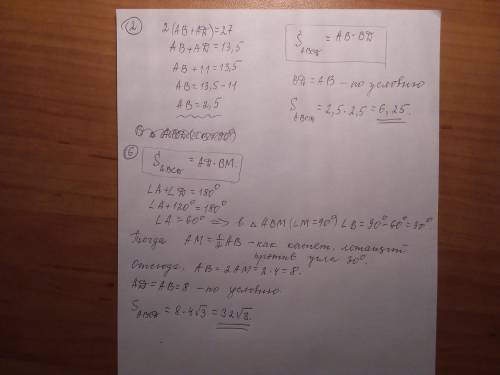 ②
2(AB+AD)=27
AB+AD=13,5
AB+11=13,5
AB=13,5-11
AB=2,5
S ABCD = AB·BD
BD=AB - по условию
S ABCD = 2,5·2,5=6,25.
⑥
S ABCD = AD·BM.
∠A+∠D=180°
∠A+120°=180°
∠A=60° ⇒ в △ABM (∠M=90°) ∠B=90°-60°=30°
Тогда AM=1/2 AB - как катет, лежащий
против угла 30°.
Отсюда, AB=2AM=2·4=8.
AD=AB=8 - по условию
S ABCD = 8·4√3=32√3.